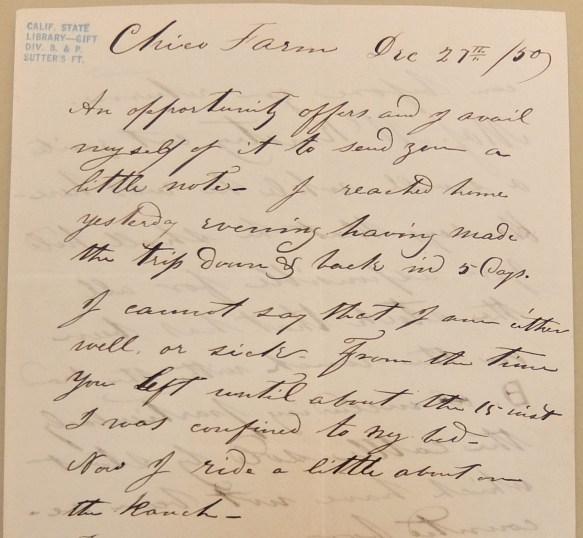 CALIF. STATE
LIBRARY—GIFT
DIV. B. & P.
SUTTER'S FT.
Chico Farm Dec 27th /50
An opportunity offers and I avail
myself of it to send you a
little note— I reached home
yesterday evening having made
the trip down & back in 5 Days.
I cannot say that I am either
well, or sick. From the time
you left until about the 15 inst
I was confined to my bed—
Now I ride a little about on
the Ranch—